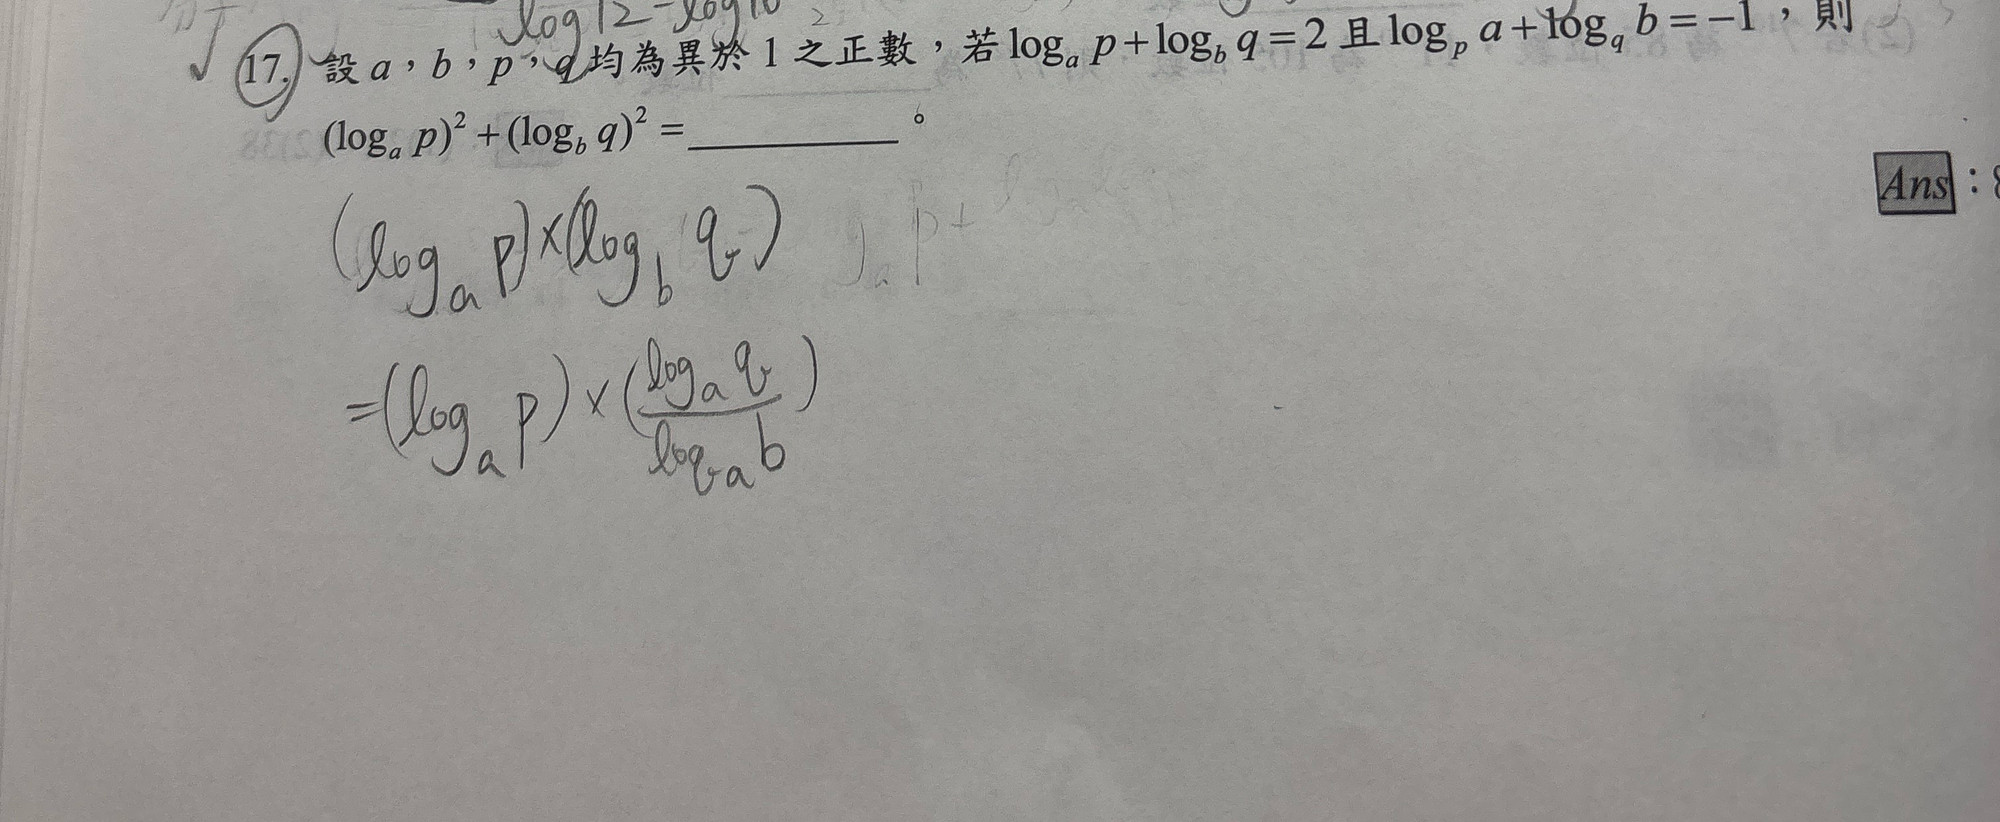 log12-log10
17. 設 a，b，p，q 均為異於 1 之正數，若 logₐ p + log_b q = 2 且 log_p a + log_q b = −1，則
(logₐ p)² + (log_b q)² = ________。
Ans：8
(logₐ p)×(log_b q)
=(logₐ p)×(logₐ q / logₐ b)